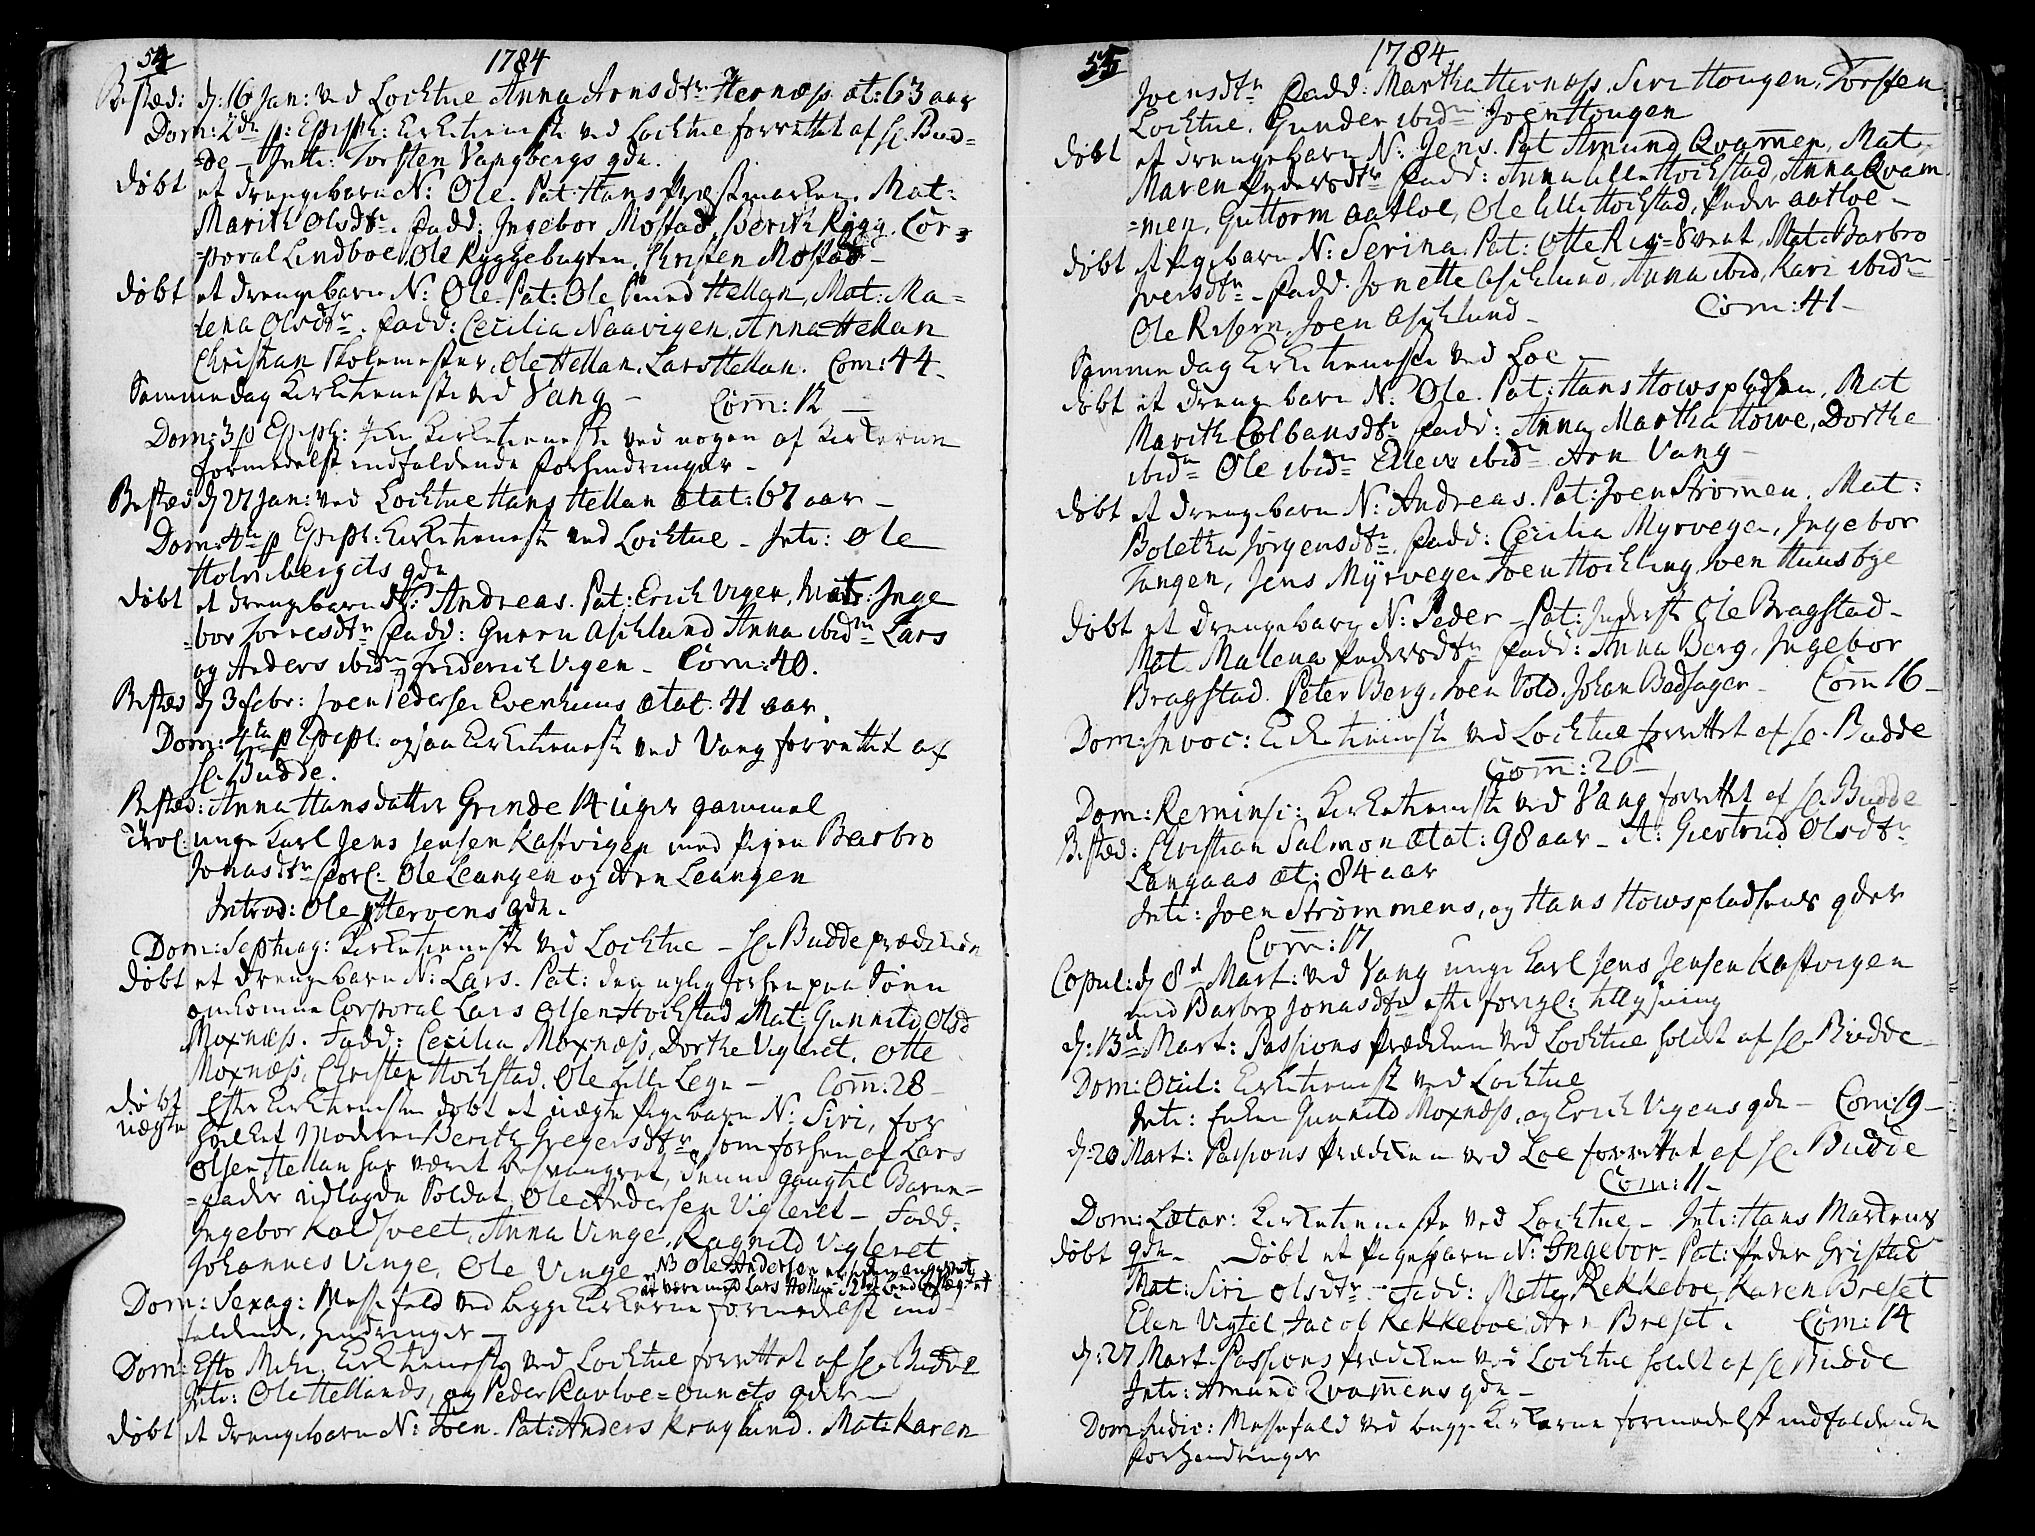 54
1784
Bestæd: d: 16 Jan: ved Locktue Anna Arnsdtr Hernæss æt: 63 aar
Dom: 2den p: Epiph: Kirketieneste ved Locktue forrettet af Hr. Bud-
=de - Intr: Torsten Vangbergs qde.
døbt et drengebarn N: Ole. Pat: Hans Præstmarken. Mat:
Marith Olsdtr. fadd: Ingebor Mostad, Berith Rygg. Cor-
=poral Lindboe, Ole Ryggebugten, Christen Mostad -
døbt et drengebarn N: Ole. Pat: Ole Hellan, Mat: Ma=
lena Olsdtr. fadd: Cecilia Naavigen, Anna Hellan
Christian Skolemester, Ole Hellan, Lars Hellan. Com: 44-
Samme dag Kirketieneste ved Vang - Com: 12 -
Dom: 3 p Epiph: Kirketieneste ved nogen af Kirkerne
formedelst indfaldende forhindringer -
Bestæd d 27 Jan: ved Locktue Hans Hellan ætat: 67 aar -
Dom: 4te p Epiph: Kirketieneste ved Locktue - Intr: Ole
Holmbergets qde
døbt et drengebarn N: Andreas. Pat: Erich Vigen, Mat: Inge
=bor Torresdtr fadd: Guren Aschlund Anna ibidm Lars
og Anders ibidm, Friderich Vigen - Com: 40.
Bestæd d 3 febr: Joen Pedersen Evenhuus ætat: 41 aar.
Dom: 4te p Epiph: ogsaa Kirketieneste ved Vang forrettet af
Hr. Budde.
Bestæd: Anna Hansdatter Grinde 14 uger gammel
Trol: unge Karl Jens Jensen Kastvigen med Pigen Barbro
Jonasdtr forl: Ole Leangen og Arn Leangen
Introd: Ole Hervens qde.
Dom: Septuag: Kirketieneste ved Locktue - Hr. Budde prædikede
døbt et drengebarn N: Lars. Pat: den uylig forhen paa Søen
omkomne Corporal Lars Olsen Hockstad Mat: Gunnild Olsd
Moxnæss. Fadd: Cecilia Moxnæss, Dorthe Vigleret. Otte
Moxnæss, Christen Hockstad. Ole Lille Lege - Com: 28-
døbt uægte Efter Kirketienesten døbt et uægte Pigebarn N: Siri, for
hvilket Moderen Berith Gregersdtr, som forhen af Lars
Olsen Hellan har været besvangret, denne gang til Barne-
=fader udlagde Soldat Ole Andersen Vigleret - Fadd:
Ingebor Kaldsveet, Anna Vinge, Ragnild Vigleret
Johannes Vinge, Ole Vinge - NB Ole Andersen
Dom: Sexag: Messefald ved begge Kirkerne formedelst ind-
faldende hindringer -
Dom: Esto Mihi Kirketieneste ved Locktue forrettet af Hr. Budde
Intr: Ole Hellands, og Peder Ravloe=eunets qder -
døbt et drengebarn N: Joen. Pat: Anders Kraglund. Mat: Karen
55
1784.
Joensdtr fadd: Martha Hernæss, Siri Hougen, Torsten
Locktue. Gunder ibidm Joen Hougen
døbt et drengebarn N: Jens. Pat Amund Qvammen, Mat
Maren Pedersdtr fadd: Anna Lille Hockstad, Anna Qvam
=men, Guttorm Aatloe, Ole Lille Hockstad, Peder Aatloe -
døbt et Pigebarn N: Serina. Pat: Otte Ris=Øvret, Mat. Barbro
Iversdtr - fadd. Jonette Aschlund, Anna ibid, Kari ibidm
Ole Risørn, Joen Aschlund - Com: 41-
Samme dag Kirketieneste ved Loe -
døbt et drengebarn N: Ole. Pat: Hans Howspladsen, Mat
Marith Colbansdtr fadd: Anna Martha Howe, Dorthe
ibidm Ole ibidm Ellev ibidm Arn Vang -
døbt et drengebarn N: Andreas. Pat: Joen Strømen. Mat:
Boletha Jørgensdtr. fadd: Cecilia Myrvegen, Ingebor
Tangen, Jens Myrvegen Joen Hockling, Joen Huusbye
døbt et drengebarn N: Peder - Pat: Inderst Ole Bragstad -
Mat. Malena Pedersdtr fadd: Anna Berg, Ingebor
Bragstad. Peter Berg, Joen Vold. Johan Badstager - Com 16-
Dom: Invoc: Kirketieneste ved Locktue forrettet af Hr. Budde
Com: 26-
Dom: Reminsc: Kirketieneste ved Vang forrettet af Hr. Budde
Bestæd: Christian Salmon ætat: 98 aar - it: Giertrud Olsdtr
Langaas æt: 84 aar
Intr: Joen Strømmens, og Hans Howspladsens qder
Com: 17
Copul: d 8d Mart: ved Vang unge Karl Jens Jensen Kastvigen
med Barbro Jonasdtr efter foregl: tillysning
d: 13d Mart: Passions Prædiken ved Locktue holdt af Hr. Budde -
Dom: Ocul: Kirketieneste ved Locktue
Intr: Enken Gunnild Moxnæss, og Erich Vigens qde - Com: 19-
d: 20 Mart: Passions Prædiken ved Loe forrettet af Hr. Budde
Com: 11-
Dom: Lætar: Kirketieneste ved Locktue - Intr: Hans Martens
qde -
døbt Døbt et Pigebarn N: Ingebor - Pat: Peder Gristad
Mat: Siri Olsdtr - Fadd: Mette Rekkeboe, Karen Breset
Elen Vigtel, Jacob Rekkeboe, Arn Breset. Com: 14
d: 27 Mart Passions Prædiken ved Locktue holdt af Hr Budde
Intr: Amund Qvamens qde -
Dom Judic: Messefald ved begge Kirkerne formedelst indfaldende
forhindringer